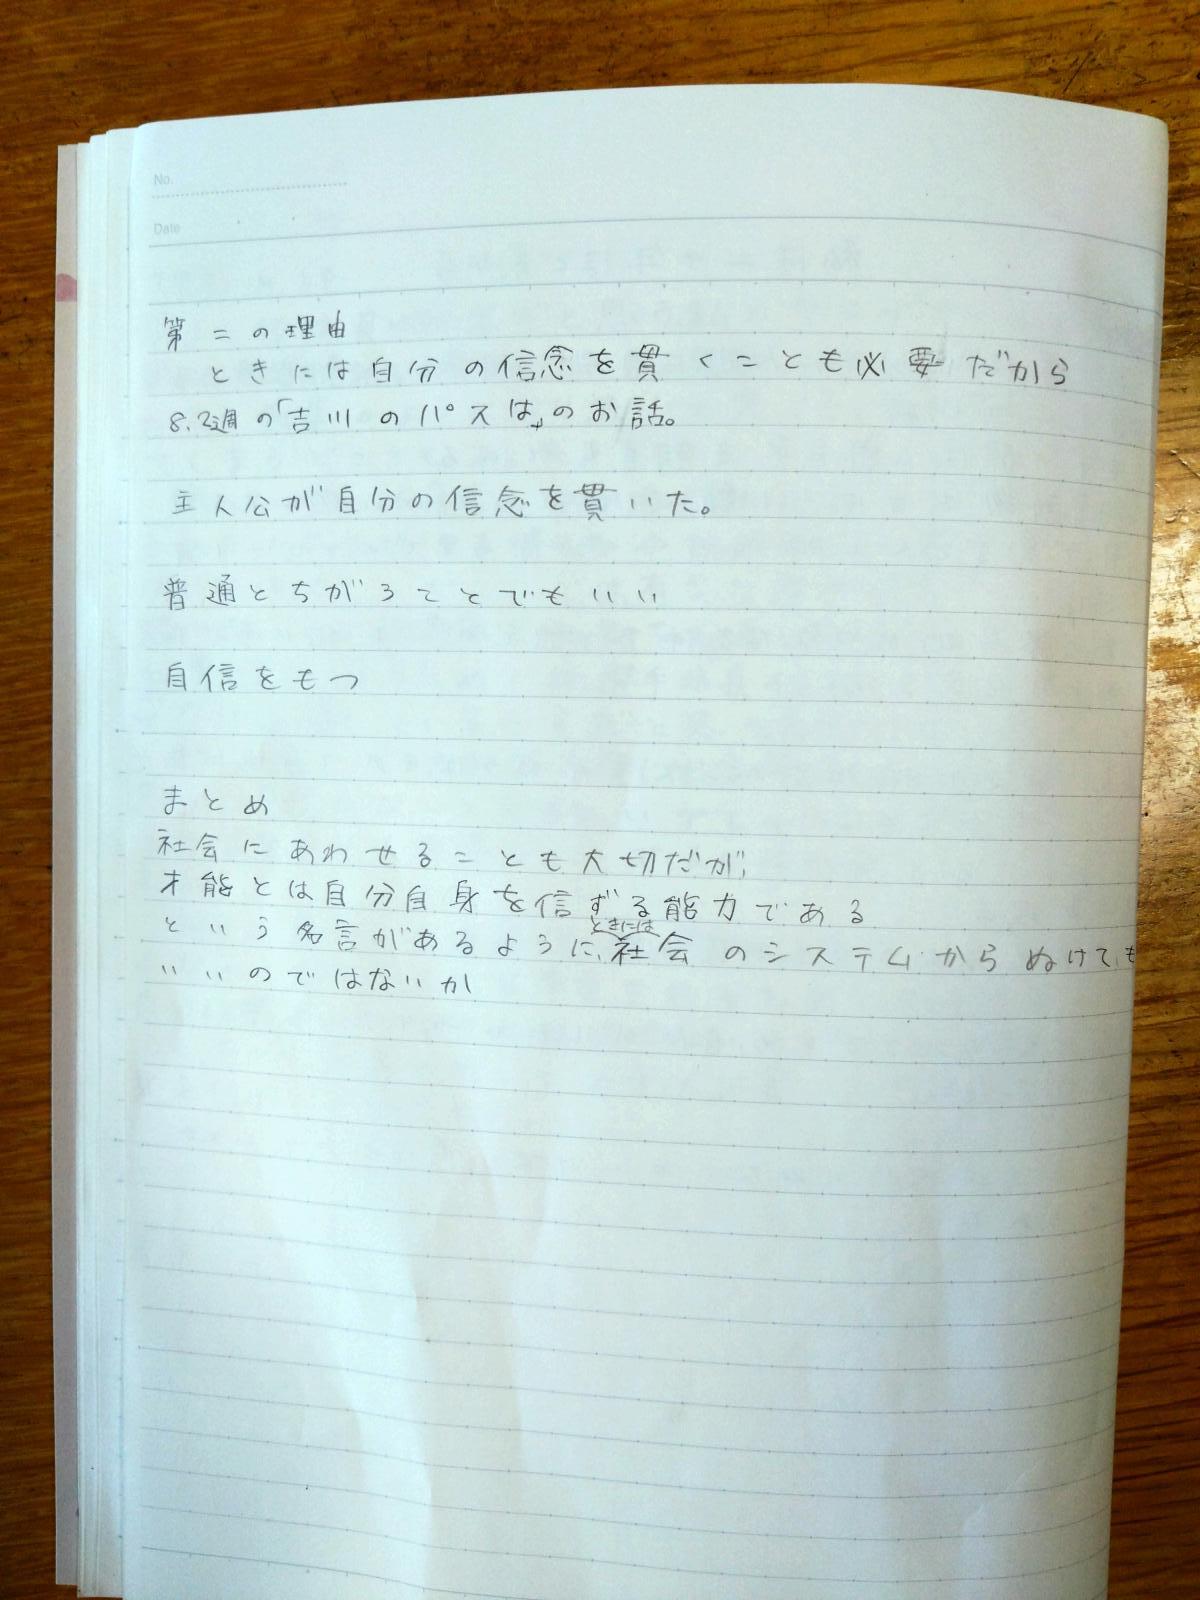 No.
Date
第二の理由
ときには自分の信念を貫くことも必要だから
8.2週の「吉川のパスは」のお話。
主人公が自分の信念を貫いた。
普通とちがうことでもいい
自信をもつ
まとめ
社会にあわせることも大切だが、
才能とは自分自身を信ずる能力である
ときには
という名言があるように、社会のシステムからぬけても
いいのではないか